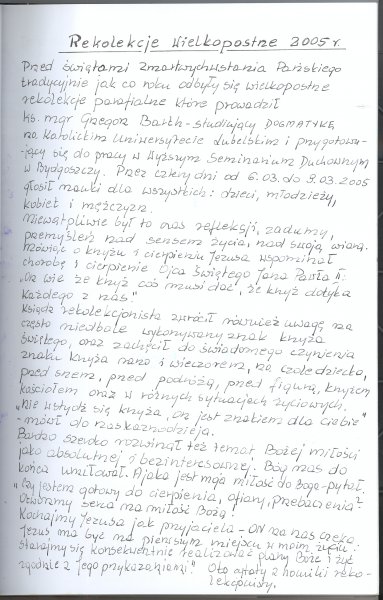 Rekolekcje Wielkopostne 2005 r.
Przed świętami Zmartwychwstania Pańskiego
tradycyjnie jak co roku odbyły się wielkopostne
rekolekcje parafialne które prowadził
ks. mgr Gregor Barth - studiujący DOGMATYKĘ
na Katolickim Uniwersytecie Lubelskim i przygotowu-
jący się do pracy w Wyższym Seminarium Duchownym
w Bydgoszczy. Przez cztery dni od 6.03. do 9.03.2005
głosił nauki dla wszystkich: dzieci, młodzieży,
kobiet i mężczyzn.
Niewątpliwie był to czas refleksji, zadumy,
przemyśleń nad sensem życia, nad swoją wiarą.
Mówiąc o krzyżu i cierpieniu Jezusa wspominał
chorobę i cierpienie Ojca Świętego Jana Pawła II:
„On wie że krzyż coś musi dać, że krzyż dotyka
każdego z nas."
Ksiądz rekolekcjonista zwrócił również uwagę na
często niedbale wykonywany znak krzyża
świętego, oraz zachęcił do świadomego czynienia
znaku krzyża rano i wieczorem, na czole dziecka,
przed snem, przed podróżą, przed figurą, krzyżem
kościołem oraz w różnych sytuacjach życiowych.
„Nie wstydź się krzyża, On jest znakiem dla ciebie"
- mówił do nas kaznodzieja.
Bardzo szeroko rozwinął też temat Bożej miłości
jako absolutnej i bezinteresownej. Bóg nas do
końca umiłował. A jaka jest moja miłość do Boga - pytał.
„Czy jestem gotowy do cierpienia, ofiary, przebaczenia?
Otwórzmy serca na miłość Bożą!
Kochajmy Jezusa jak przyjaciela - ON na nas czeka.
Jezus ma być na pierwszym miejscu w moim życiu:
starajmy się konsekwentnie realizować plany Boże i żyć
zgodnie z Jego przykazaniami" Oto cytaty z homilii reko-
lekcyjnej.